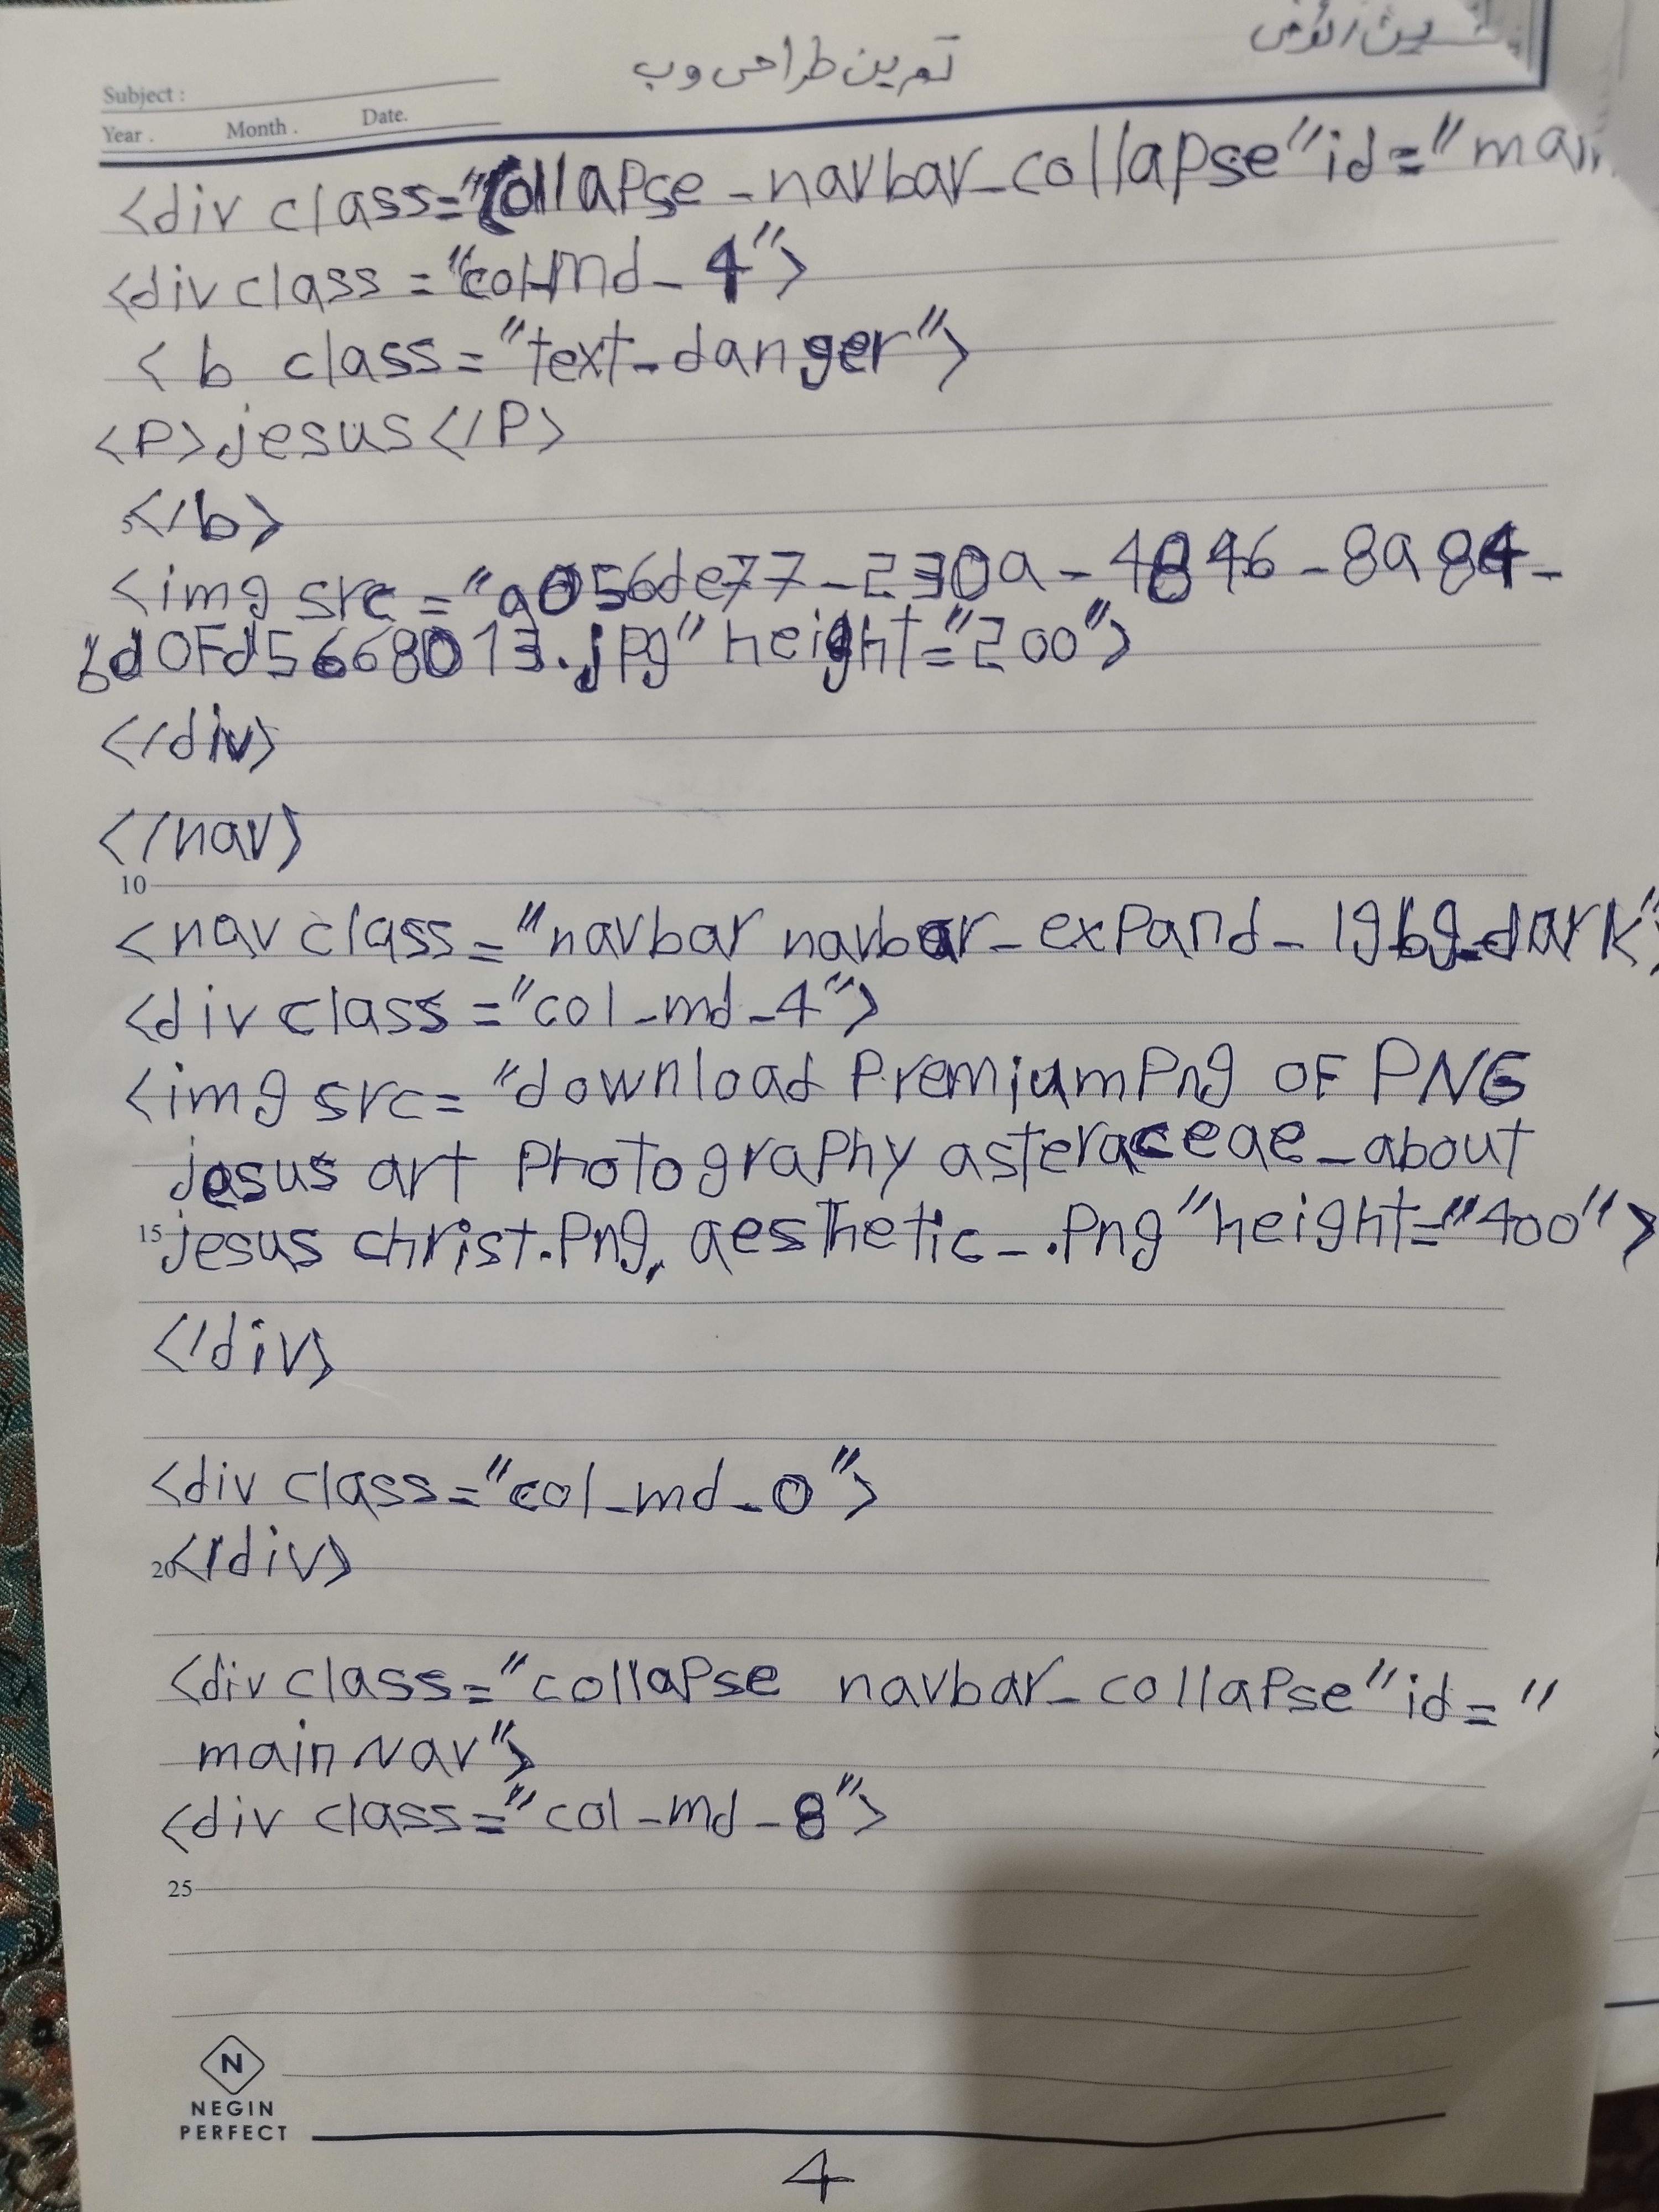 تمرین طراحی وب
Subject :
Year . Month . Date.
<div class="collapse - navbar_collapse" id="main
<div class="col-md-4">
<b class="text-danger">
<P>jesus</P>
5
</b>
<img src="a056de77-230a-4846-8a84-
6d0Fd5668013.jpg" height="200">
</div>
</nav>
10
<nav class="navbar navbar-expand-lgbg-dark">
<div class="col_md_4">
<img src="download PremiumPng OF PNG
jesus art Photography asteraceae_about
15 jesus christ.Png, aesthetic_.Png" height="400">
</div>
<div class="col_md_0">
20 </div>
<div class="collapse navbar_collapse" id="
mainNav">
<div class="col-md-8">
25
N
NEGIN
PERFECT
4